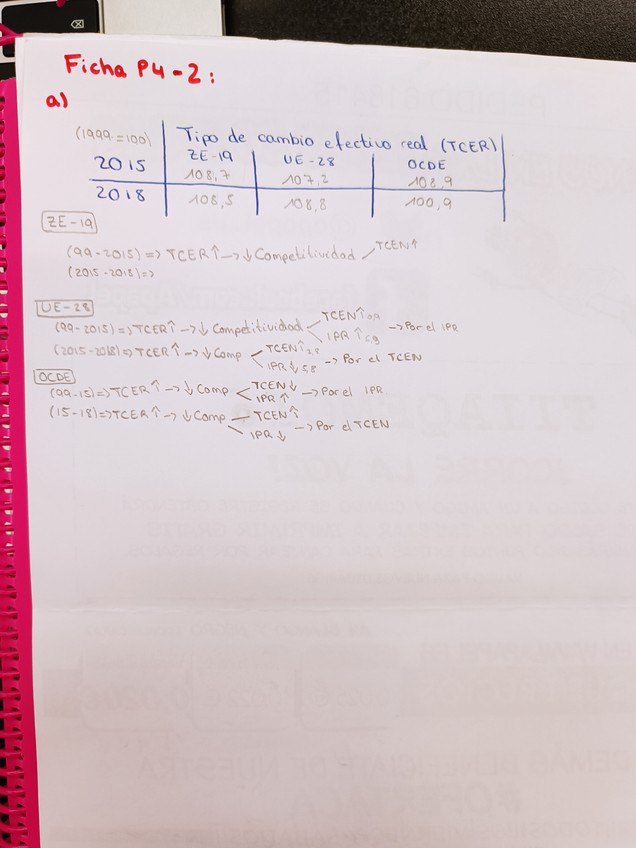 Ficha P4-2:
a)
(1999=100) Tipo de cambio efectivo real (TCER)
ZE-19 UE-28 OCDE
2015 108,7 107,2 108,9
2018 108,5 108,8 100,9
ZE-19
(99-2015) => TCER↑ -> ↓ Competitividad TCEN↑
(2015-2018) =>
UE-28
(99-2015) => TCER↑ -> ↓ Competitividad TCEN↑ 0,9
IPR ↑ 6,9 -> Por el IPR
(2015-2018) => TCER↑ -> ↓ Comp TCEN↑ 2,8
IPR↓ 5,8 -> Por el TCEN
OCDE
(99-15) => TCER↑ -> ↓ Comp TCEN↓
IPR↑ -> Por el IPR
(15-18) => TCER↑ -> ↓ Comp TCEN↑
IPR↓ -> Por el TCEN